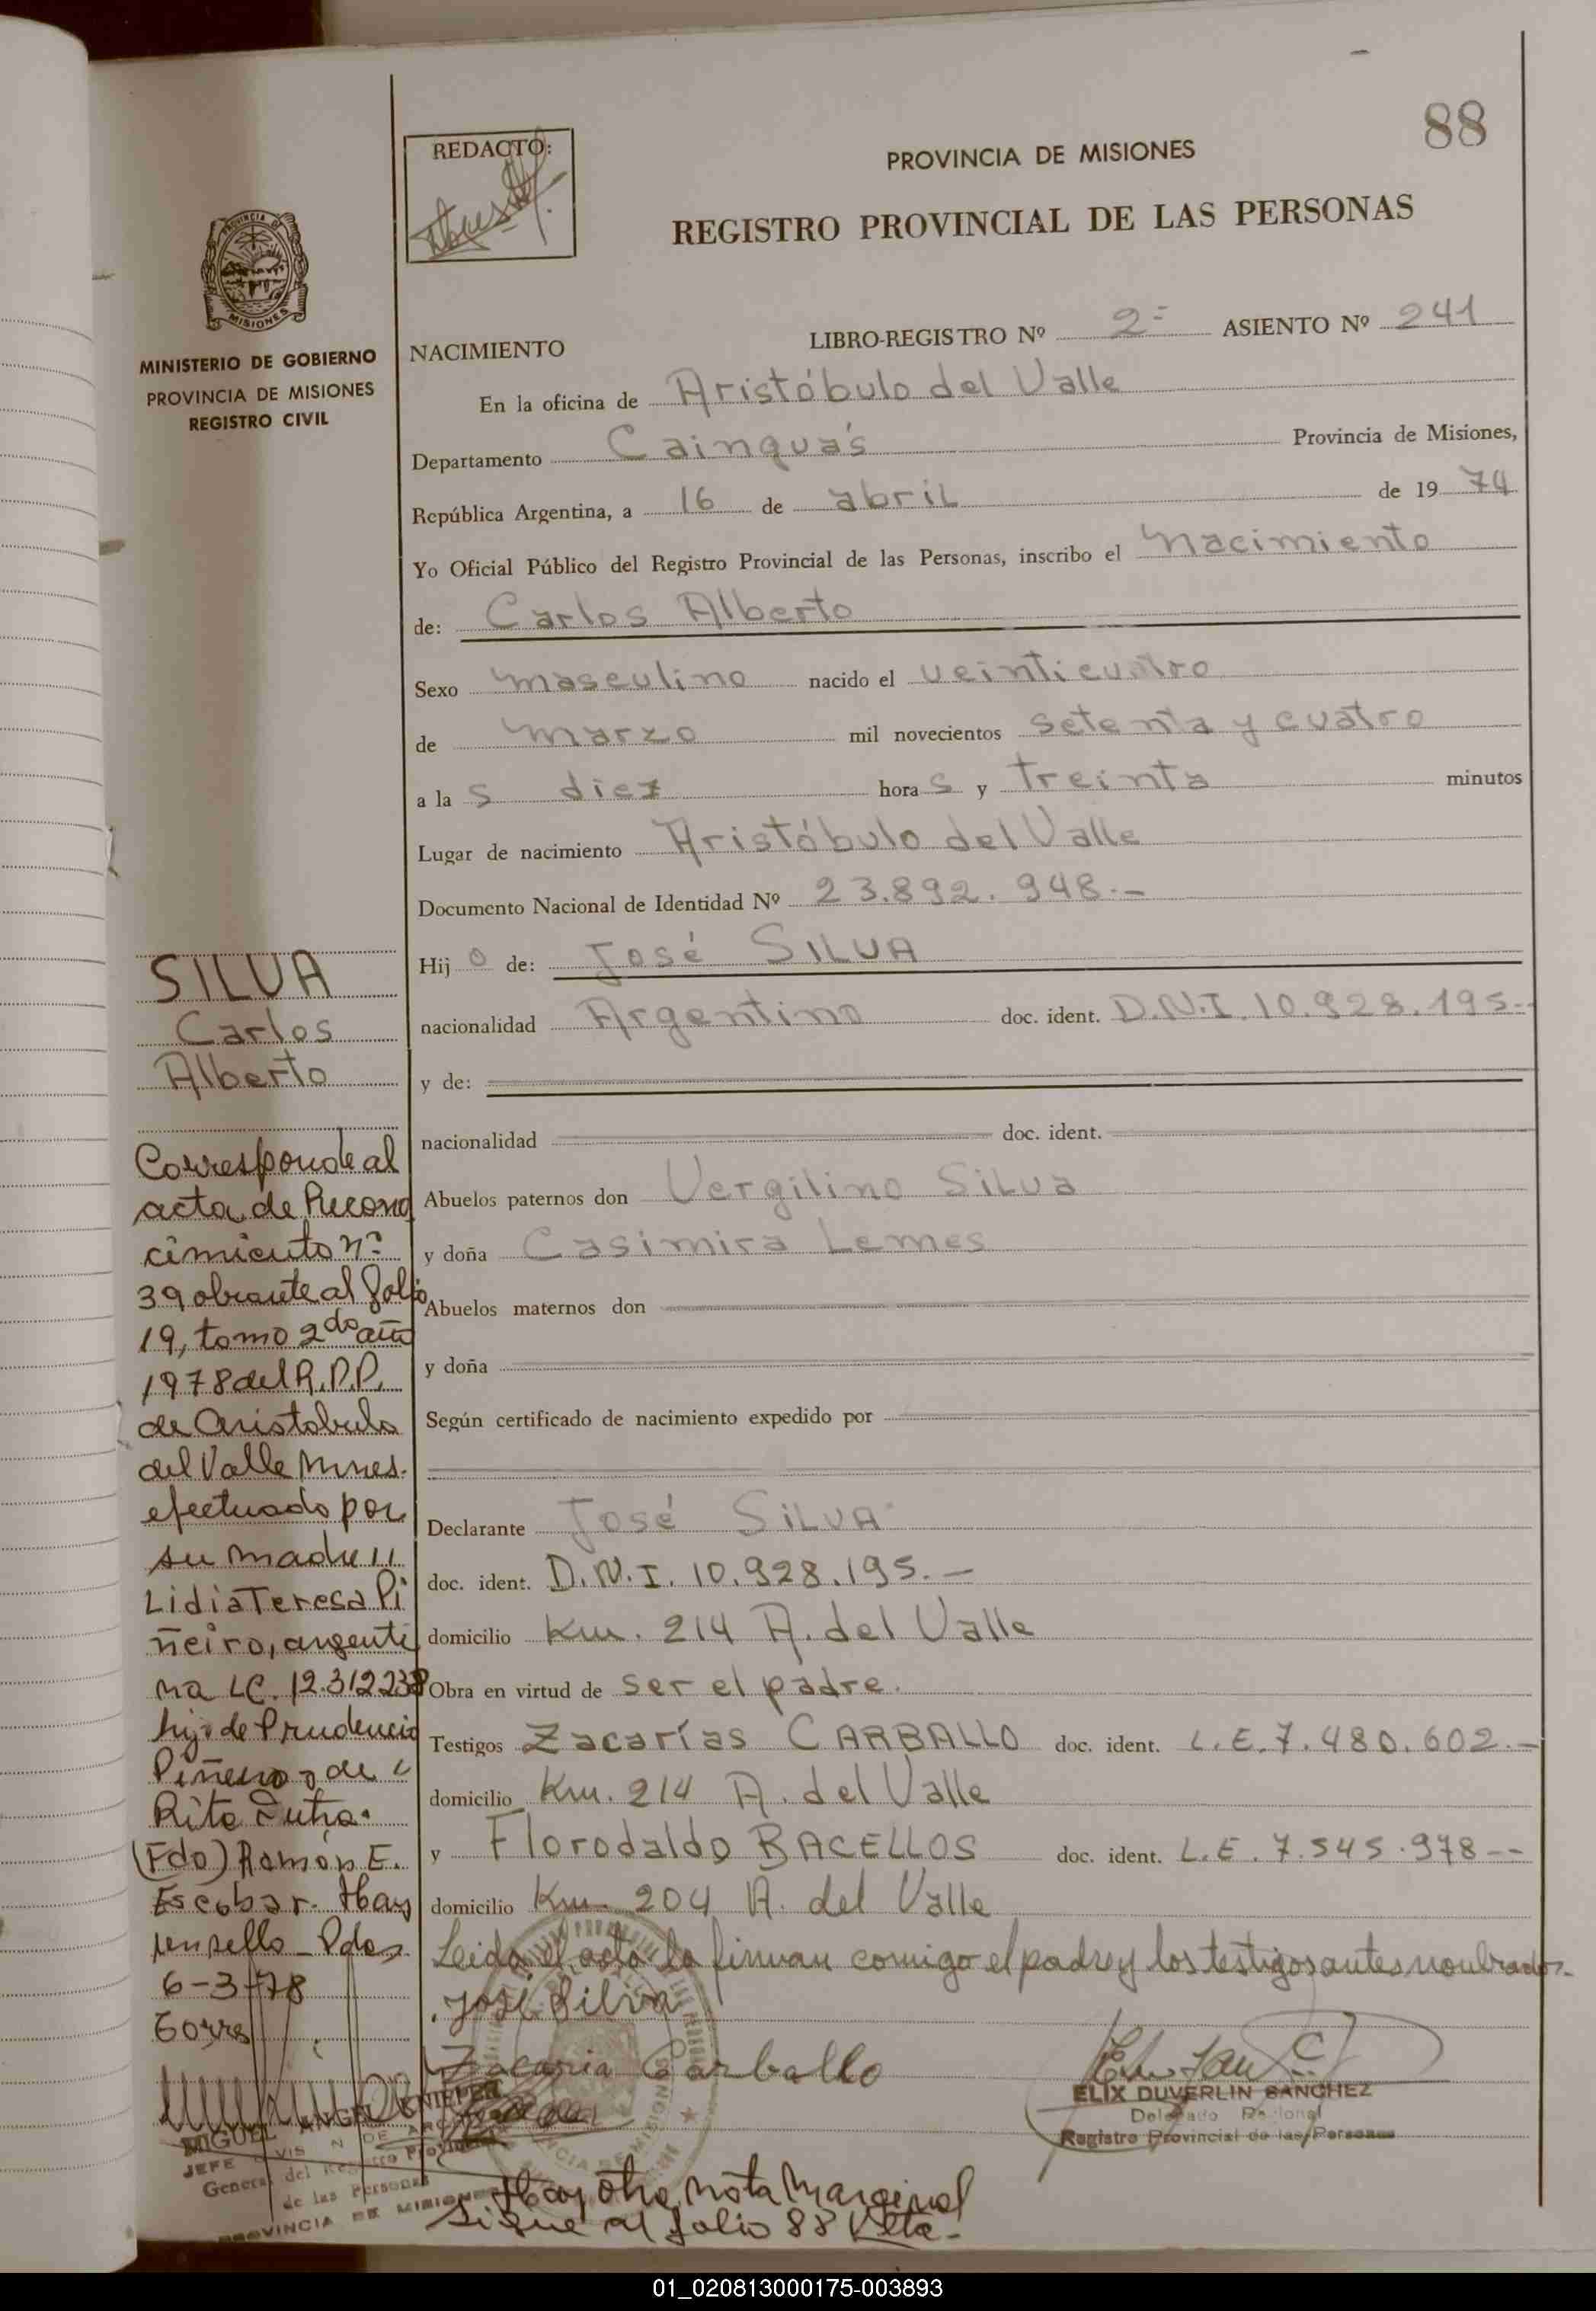 88
REDACTO:
PROVINCIA DE MISIONES
REGISTRO PROVINCIAL DE LAS PERSONAS
PROVINCIA DE
MISIONES
MINISTERIO DE GOBIERNO
PROVINCIA DE MISIONES
REGISTRO CIVIL
NACIMIENTO LIBRO-REGISTRO Nº 2º ASIENTO Nº 241
En la oficina de Aristóbulo del Valle
Departamento Cainguás Provincia de Misiones,
República Argentina, a 16 de abril de 19 74
Yo Oficial Público del Registro Provincial de las Personas, inscribo el nacimiento
de: Carlos Alberto
Sexo masculino nacido el veinticuatro
de marzo mil novecientos setenta y cuatro
a la s diez hora s y treinta minutos
Lugar de nacimiento Aristóbulo del Valle
Documento Nacional de Identidad Nº 23.892.948.-
Hij o de: José SILVA
nacionalidad Argentino doc. ident. D.N.I. 10.928.195.-
y de:
nacionalidad doc. ident.
Abuelos paternos don Vergilino Silva
y doña Casimira Lemes
Abuelos maternos don
y doña
Según certificado de nacimiento expedido por
Declarante José SILVA
doc. ident. D.N.I. 10.928.195.-
domicilio Km. 214 A. del Valle
Obra en virtud de ser el padre.
Testigos Zacarías CARBALLO doc. ident. L.E. 7.480.602.-
domicilio Km. 214 A. del Valle
y Florodaldo BACELLOS doc. ident. L.E. 7.545.978--
domicilio Km. 204 A. del Valle
Leida el acta la firman comigo el padre y los testigos antes nombrados.-
José Silva
Zacaria Carballo
ELIX DUVERLIN SANCHEZ
Delegado Regional
Registro Provincial de las Personas
Hay otra nota marginal
sigue al folio 88 Vlta.-
SILVA
Carlos
Alberto
Corresponde al
acta de Recono
cimiento nº
39 obrante al folio
19, tomo 2do año
1978 del R.P.P.
de Aristobulo
del Valle Mnes.
efectuado por
su madre
Lidia Teresa Pi
ñeiro, argenti
na LC. 12.312.238
hija de Prudencio
Piñeiro y de
Rita
(Fdo) Ramón E.
Escobar. Hay
un sello Pdas
6-3-78
Torres
MIGUEL ANGEL
JEFE DIVISION DE
General del Registro Provincial
de las Personas
PROVINCIA DE MISIONES
01_020813000175-003893